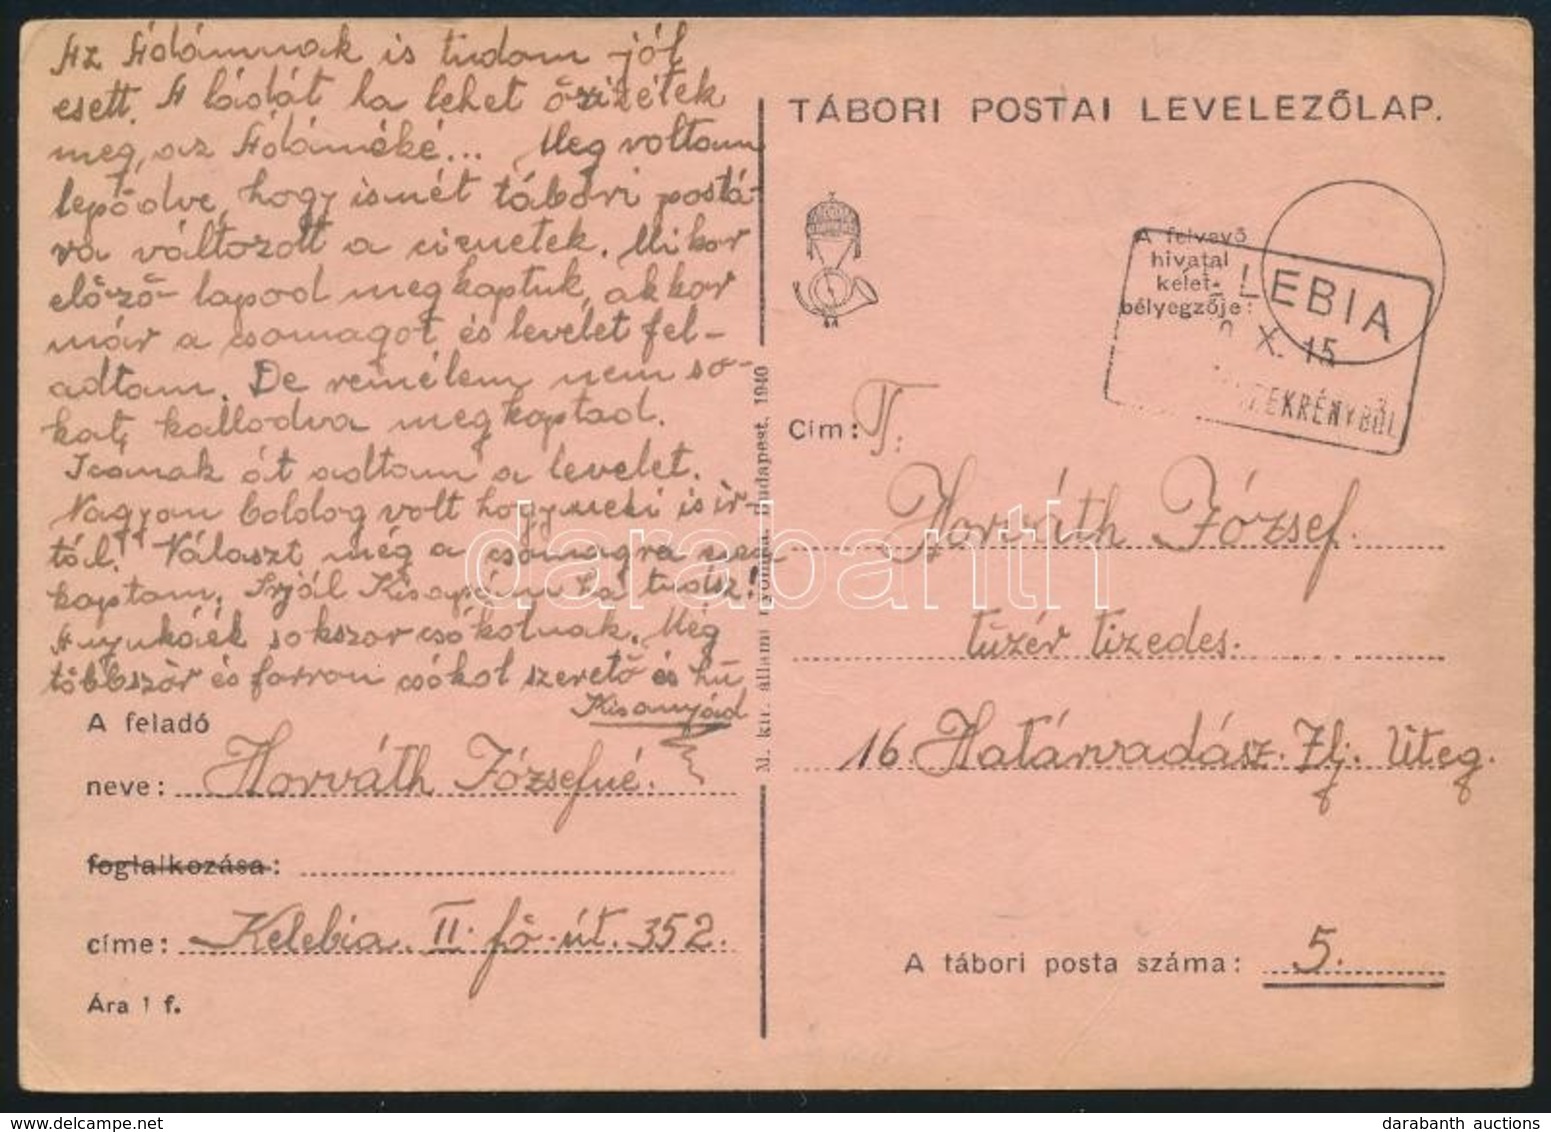 Az Ádámnak is tudom jól
esett. A ládát ha lehet őrizétek
meg, az Ádáméké... Meg voltam
lepődve, hogy ismét tábori postá-
ra változott a címetek. Mikor
előző lapod megkaptuk, akkor
már a csomagot és levelet fel-
adtam. De remélem nem so-
kat, kallodva megkaptad.
át adtam a levelet.
Nagyon boldog volt hogy neki is ír-
tál! Választ még a csomagra nem
kaptam. Irjál Kisapám ha tudsz!
Anyukáék sokszor csókolnak. Még
többször és forron csókol szerető és hű
Kisanyád
A feladó
neve: Horváth Józsefné.
foglalkozása:
címe: Kelebia. II. fő-út. 352.
Ára 1 f.
M. kir. állami nyomda. Budapest. 1940
TÁBORI POSTAI LEVELEZŐLAP.
A felvevő
hivatal
kelet-
bélyegzője:
LEBIA
X. 15
EKRÉNYBŐL
Cím: T.
Horváth József.
tüzér tizedes.
16 Határvadász. Zlj. Üteg.
A tábori posta száma: 5.
darabanth
darabanth auctions